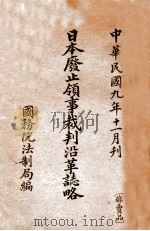 中華民國九年十一月刊
非賣品
日本廢止領事裁判沿革誌略
國務院法制局編